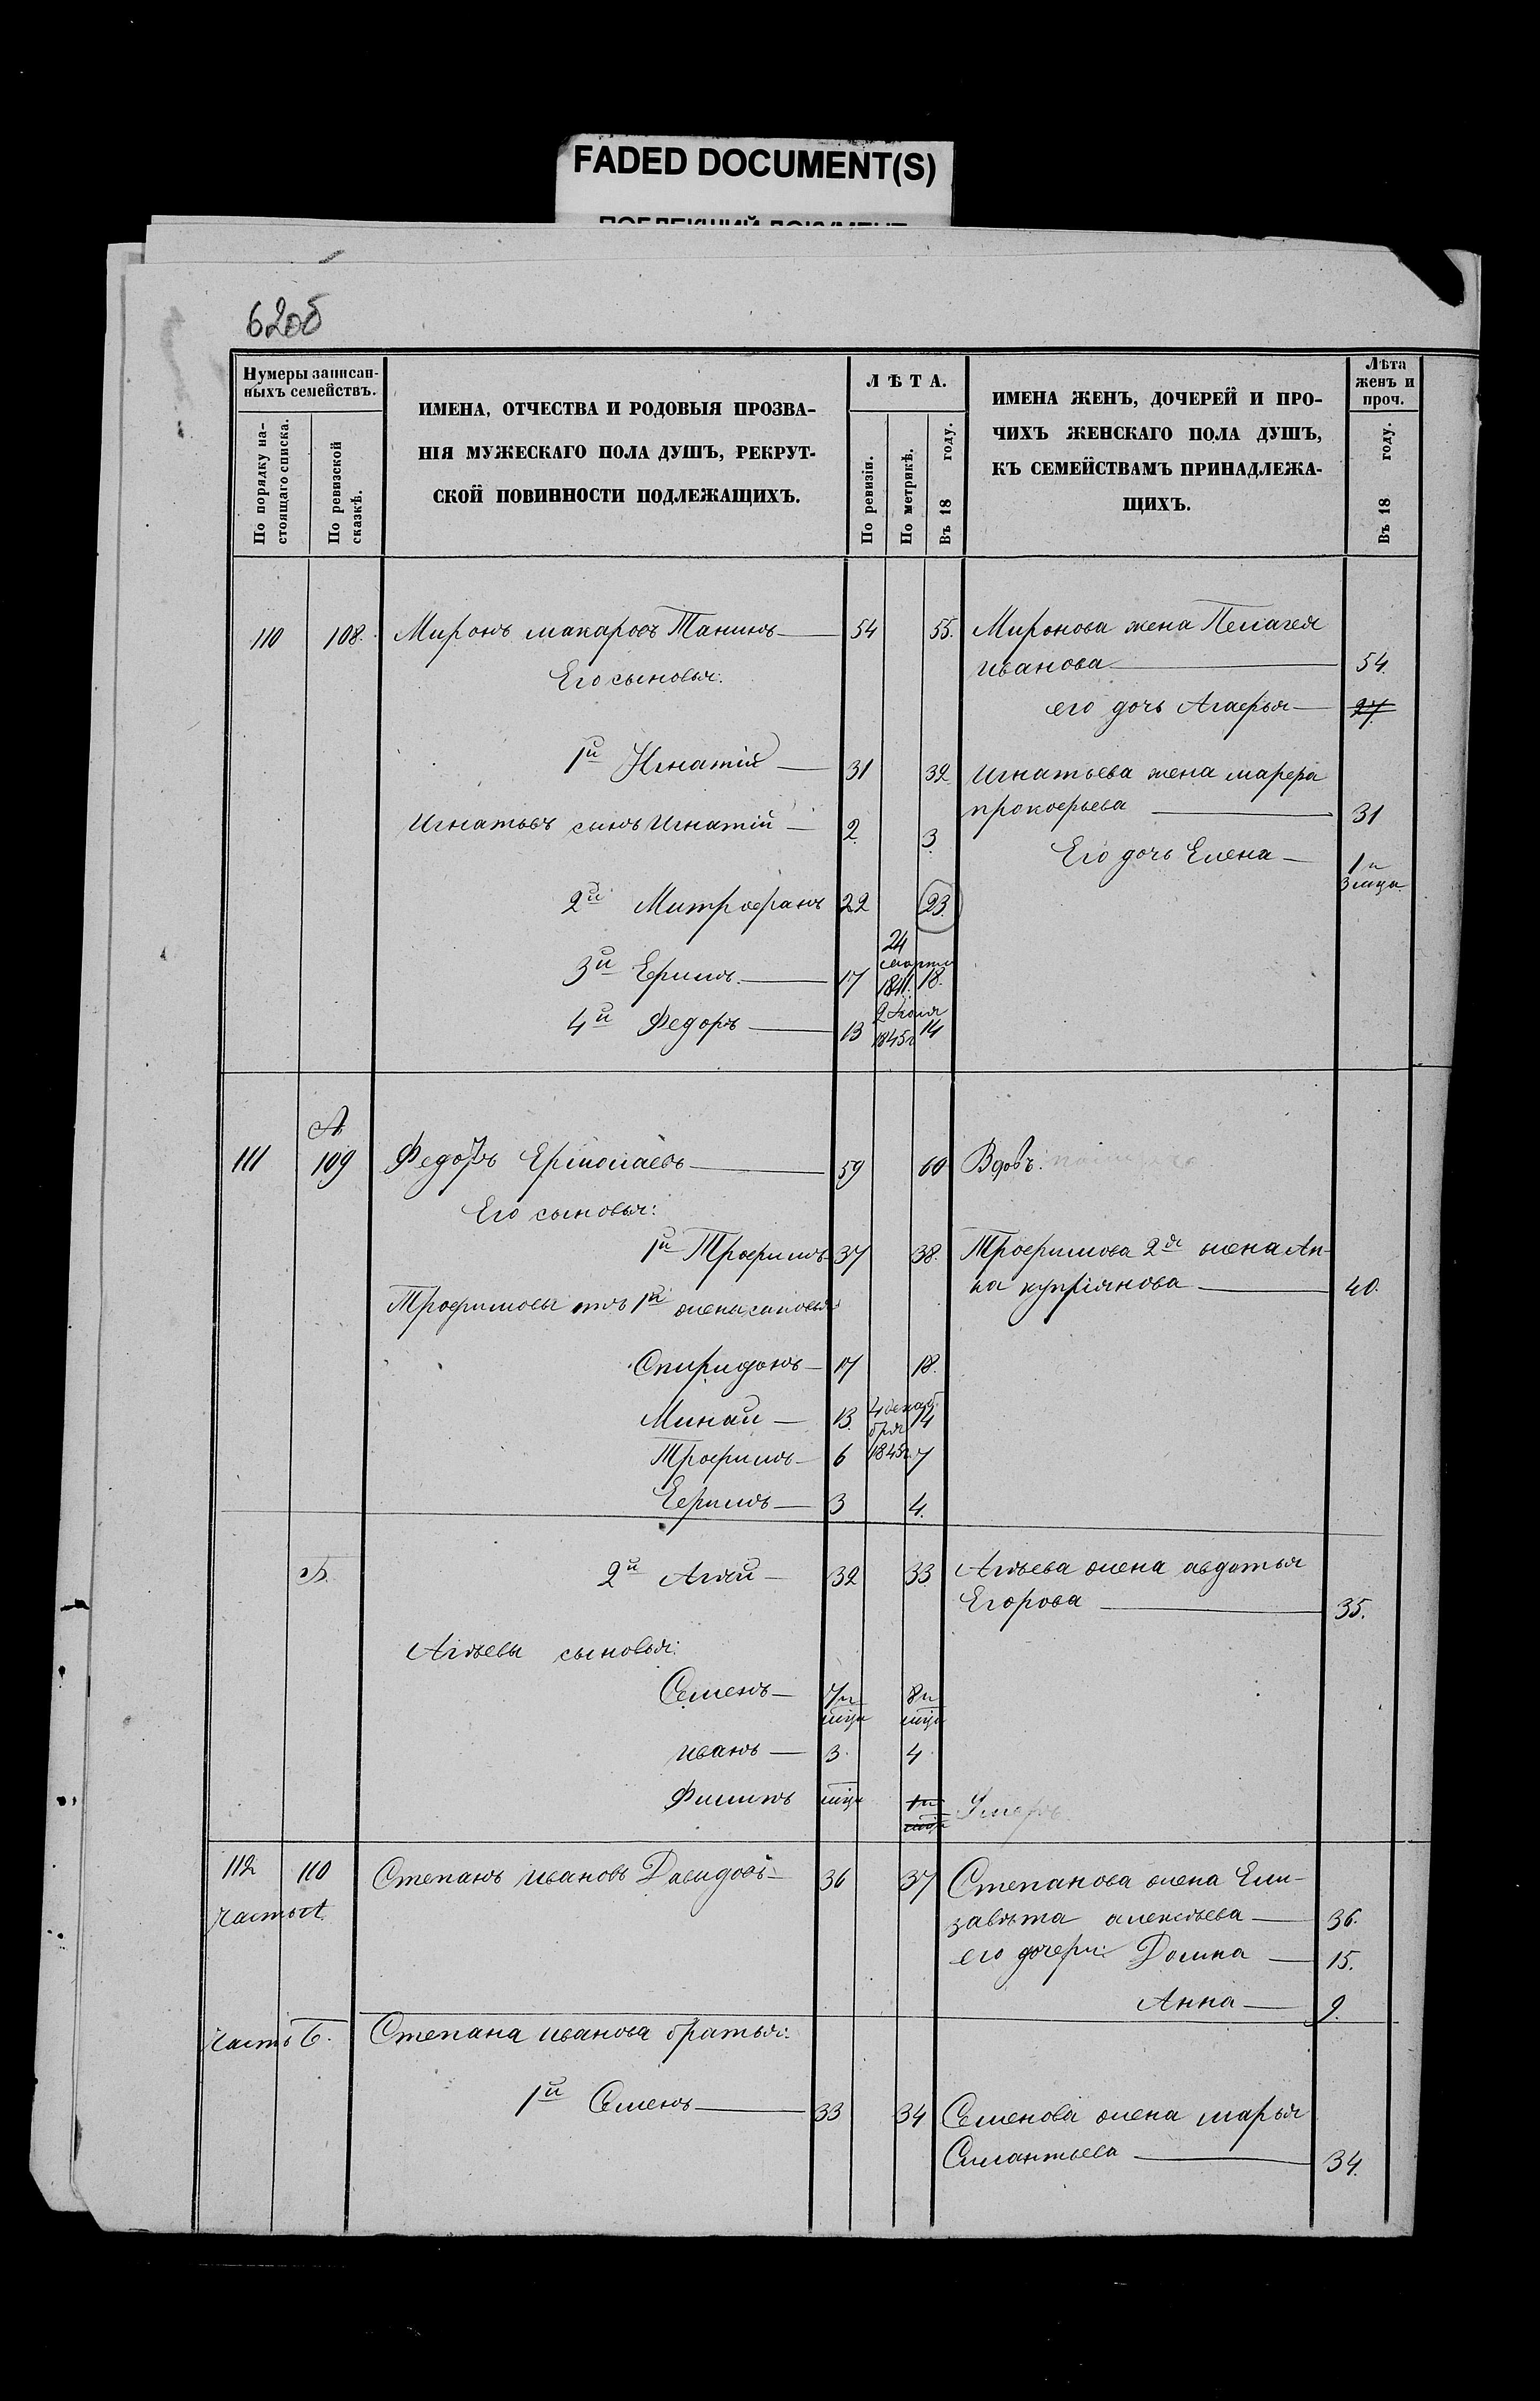 FADED DOCUMENT(S)
620б
Нумеры записан-
ныхъ семействъ.
По порядку на-
стоящаго списка.
По ревизской
сказкѣ.
ИМЕНА, ОТЧЕСТВА И РОДОВЫЯ ПРОЗВА-
НІЯ МУЖЕСКАГО ПОЛА ДУШЪ, РЕКРУТ-
СКОЙ ПОВИННОСТИ ПОДЛЕЖАЩИХЪ.
ЛѢТА.
По ревизіи.
По метрикѣ.
Въ 18 году.
ИМЕНА ЖЕНЪ, ДОЧЕРЕЙ И ПРО-
ЧИХЪ ЖЕНСКАГО ПОЛА ДУШЪ,
КЪ СЕМЕЙСТВАМЪ ПРИНАДЛЕЖА-
ЩИХЪ.
Лѣта
женъ и
проч.
Въ 18 году.
110 108. Миронъ макаровъ Танинъ 54 55. Миронова жена Пелагея
иванова 54.
Его сыновья:
его дочь Агафья 27.
1й Игнатій 31 32 игнатьева жена марфа
прокофьева 31
игнатьевъ сынъ игнатій 2. 3.
Его дочь Елена 1 и
3 мца
2й Митрофанъ 22 23.
3й Ефимъ 17 24 марта 1841. 18.
4й Федоръ 13 2 Июля 1845г 14
А
111 109 Федоръ Ермолаевъ 59 60 Вдовъ.
Его сыновья:
1й Трофимъ 37 38. Трофимова 2я жена Ан-
на купріянова 40.
Трофимовы отъ 1й жены сыновья:
Спиридонъ 17 18.
Минаи 13. 4 декаб
бря 1845г. 14
Трофимъ 6 7
Ефимъ 3 4.
Б. 2й Агѣй 32 33 Агѣева жена авдотья
Егорова 35.
Агѣевы сыновья:
Семенъ 7 и мца 8 и мца
иванъ 3. 4
Филипъ мца 1 и мца Умеръ
112 110 Степанъ ивановъ Давидовъ 36 37 Степанова жена Ели-
часть А. завѣта алексѣева 36.
его дочери: Домна 15.
Анна 9.
часть Б. Степана иванова братья:
1й Семенъ 33 34 Семенова жена марья
Силантьева 34.